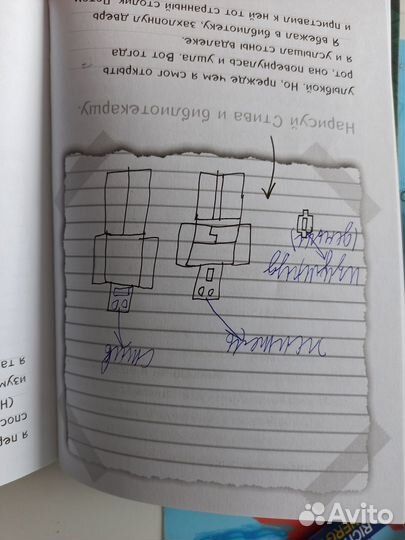 стив
изумруд
(деньги)
Нарисуй Стива и библиотекаршу.
улыбкой. Но, прежде чем я смог открыть
рот, она повернулась и ушла. Вот тогда
я и услышал стоны вдалеке.
Я вбежал в библиотеку, захлопнул дверь
и приставил к ней тот странный столик. Потом
я пер
спос
(Н
изум
я та
Avito